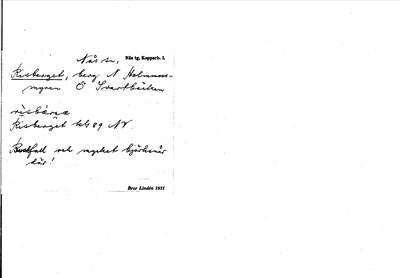 Nås sn, Nås tg, Kopparb. l.
Risberget, berg N Holmmoss-
myren Ö Svartbäcken
risbärɜe
Risberget kb 89 NV.
fall och mycket björksnår
där!
Bror Lindén 1931